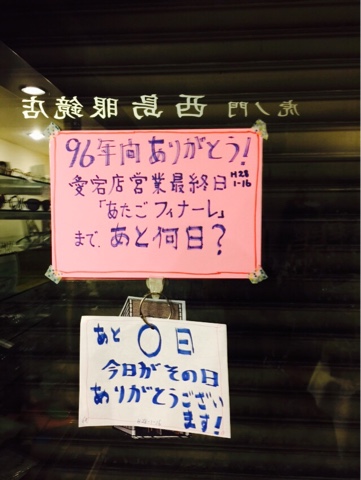 虎ノ門 西島眼鏡店
96年間ありがとう!
愛宕店営業最終日 H28 1-16
「あたごフィナーレ」
まで、あと何日?
あと 〇日
今日がその日
ありがとうござい
ます!